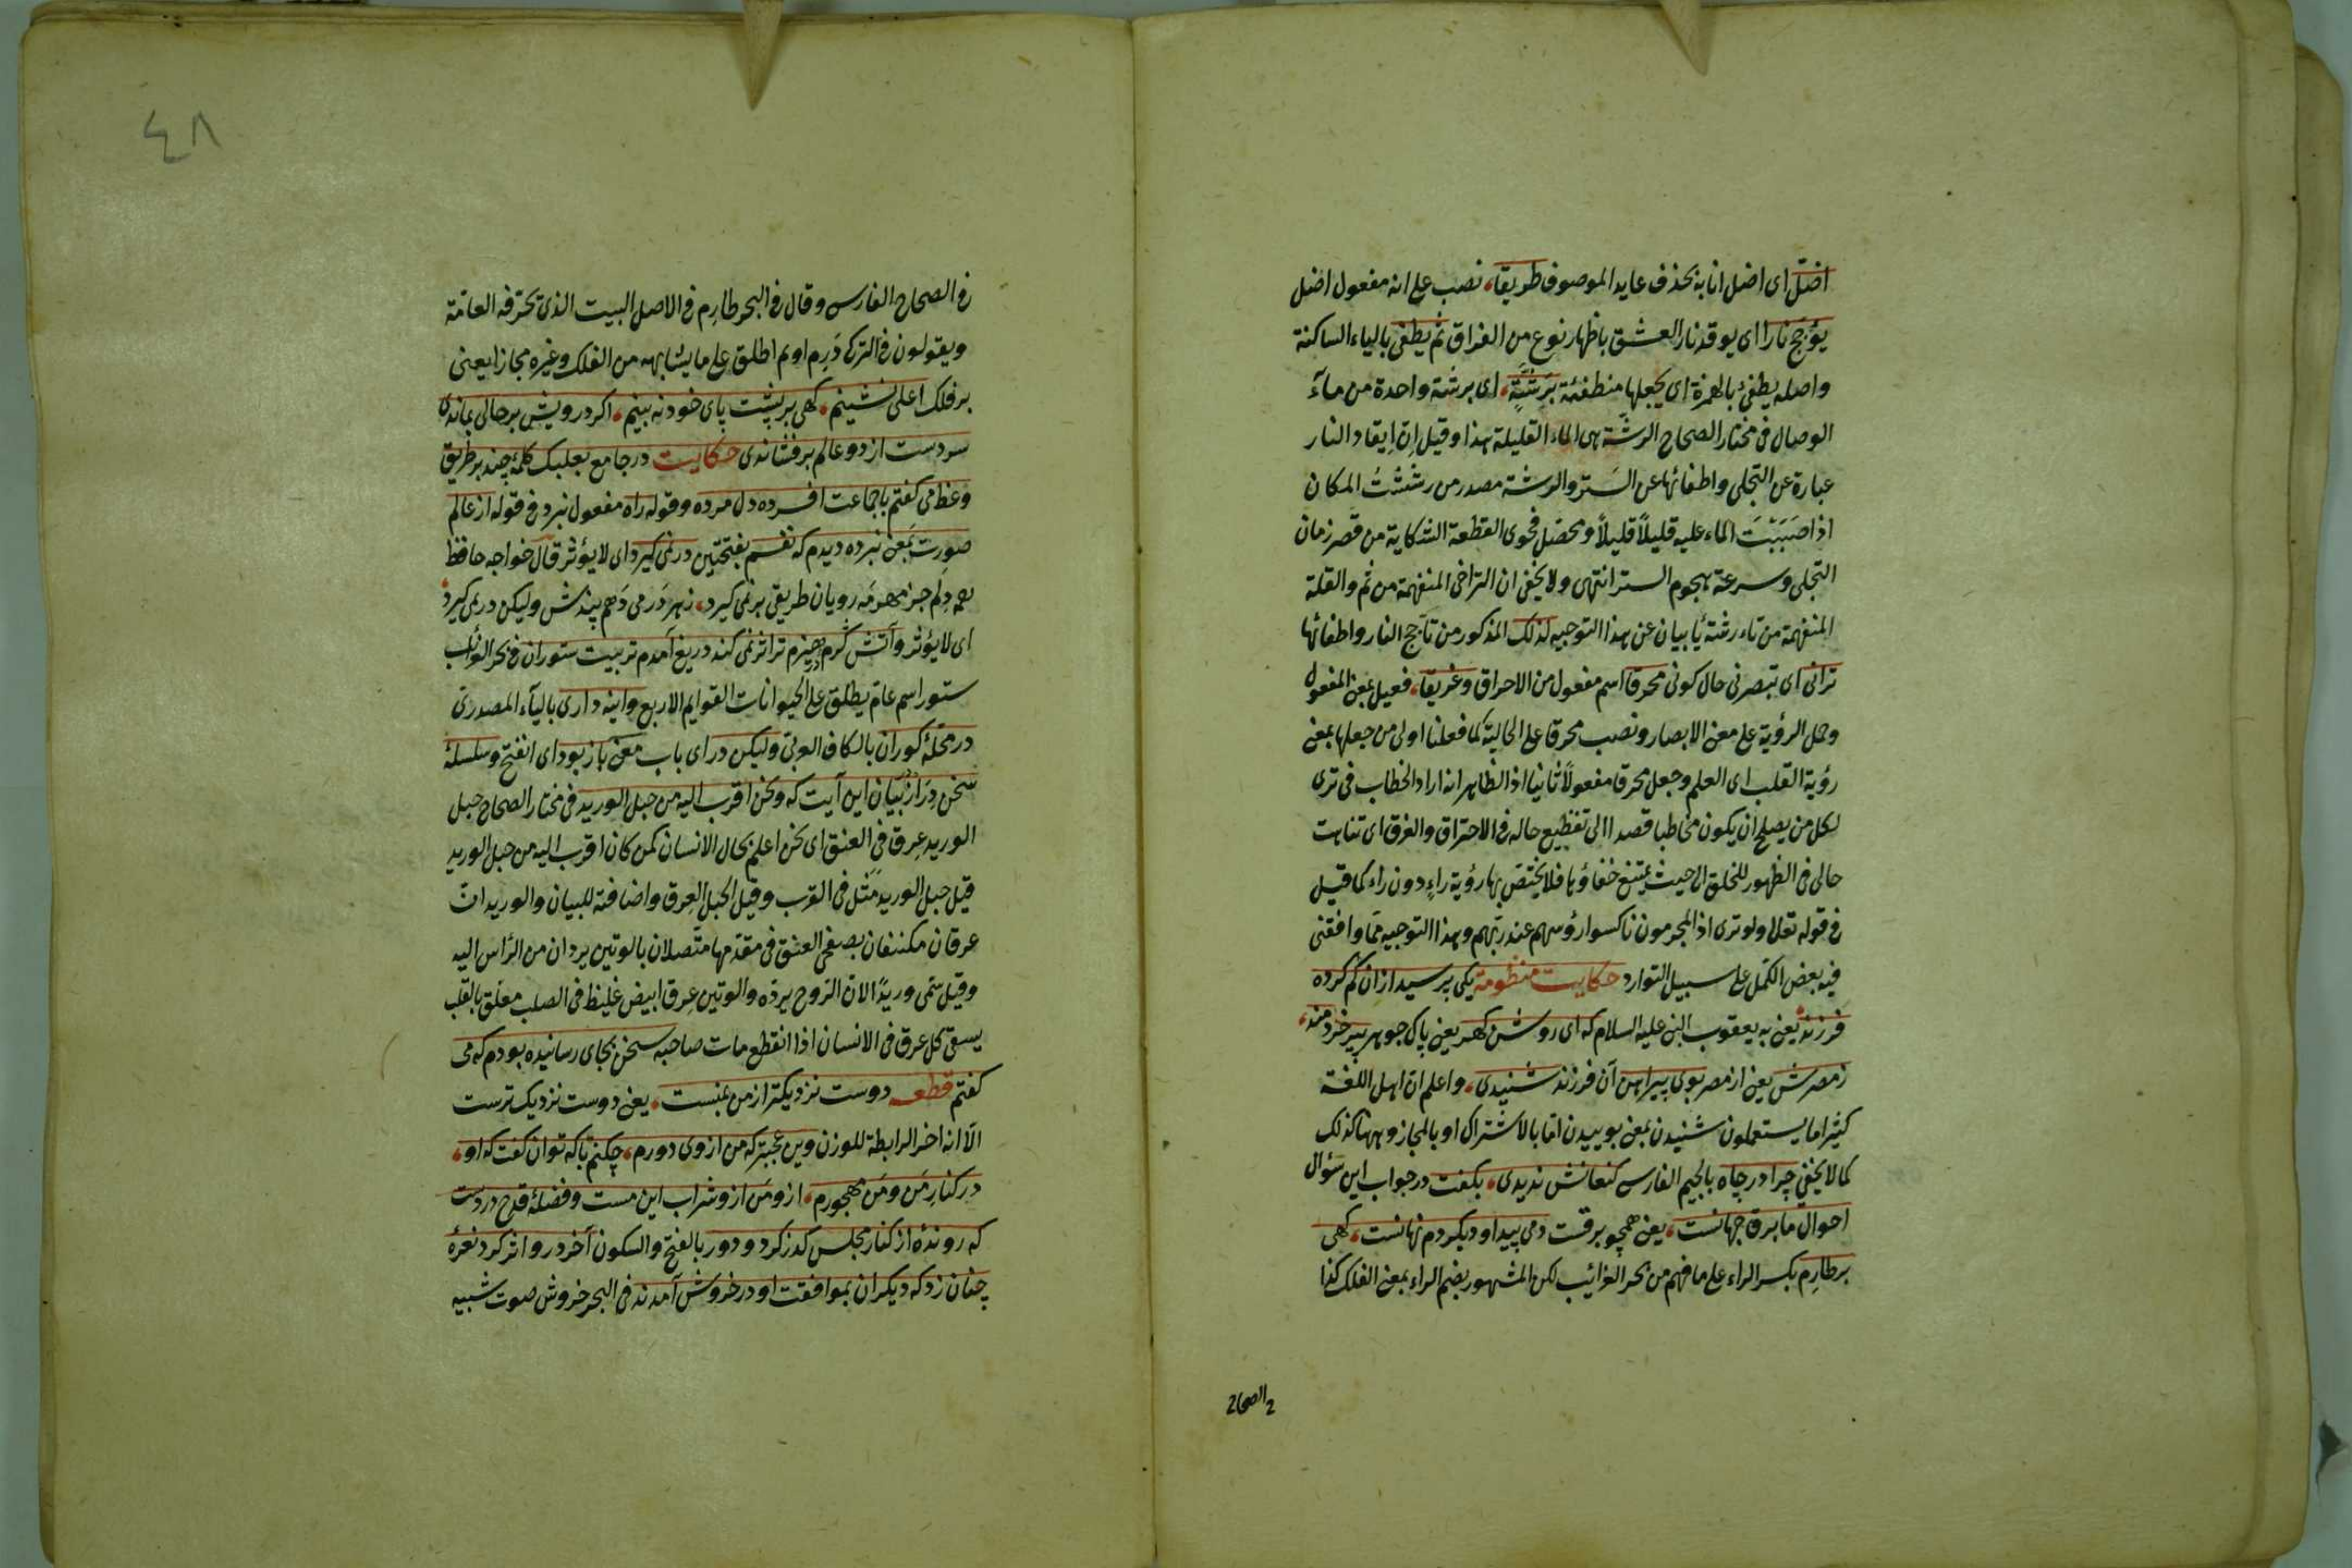 اضلّ اى اضل انا به بحذف عايد الموصوف طريقا، نصب على انه مفعول اضل
يؤجج نارا اى يوقد نار العشق باظهار نوع من الفراق ثم يطفى بالياء الساكنة
واصله يطفئ بالهمزة اى يجعلها منطفئة برشّةٍ، اى برشة واحدة من مآء
الوصال فى مختار الصحاح الرشّة هى الماء القليلة هذا وقيل ان ايقاد النار
عبارة عن التجلى واطفائها عن الستر والرشة مصدر من رششتُ المكان
اذا صَبَبْتَ الماء عليه قليلاً قليلاً ومحصّل فحوى القطعة الشكاية من قصر زمان
التجلى وسرعة هجوم الستر انتهى ولا يخفى ان التراخى المنفهمة من ثم والقلة
المنفهمة من تاء رشة يأبيان عن هذا التوجيه لذلك المذكور من تأجج النار واطفائها
ترانى اى تبصرنى حال كونى محرقا اسم مفعول من الاحراق وغريقا، فعيل بمعنى المفعول
وحمل الرؤية على معنى الابصار ونصب محرقا على الحالية كما فعلنا اولى من جعلها بمعنى
رؤية القلب اى العلم وجعل محرقا مفعولاً ثانيا اذ الظاهر انه اراد الخطاب فى ترى
لكل من يصلح ان يكون مخاطبا قصدا الى تفظيع حاله فى الاحتراق والغرق اى تناهت
حالى فى الظهور للخلق الى حيث يمتنع خفاؤها فلا يختصّ بها رؤية راءٍ دون راء كما قيل
فى قوله تعالى ولو ترى اذ المجرمون ناكسوا رؤسهم عند ربهم وهذا التوجيه مما وافقنى
فيه بعض الكمّل على سبيل التوارد حكايت منظومة يكى پرسيد از ان كم كرده
فرزند يعنى به يعقوب النبى عليه السلام كه اى روشن كهر يعنى پاك جوهر پير خردمند،
زمصرش يعنى از مصر بوى پيراهن آن فرزند شنيدى، واعلم ان اهل اللغة
كثيرا ما يستعملون شنيدن بمعنى بوييدن اما بالاشتراك او بالمجاز وههنا كذلك
كما لا يخفى چرا در چاه بالجيم الفارسى كنعانش نديدى، بكفت در جواب اين سؤال
احوال ما برق جهانست، يعنى همچو برقست دمى پيدا و ديكر دم نهانست، كهى
بر طارِم بكسر الراء على ما فهم من بحر الغرائب لكن المشهور بضم الراء بمعنى الفلك كذا
فى الصحاح
فى الصحاح الفارسى وقال فى البحر طارِم فى الاصل البيت الذى تحرّفه العامّة
ويقولون فى التركى دَرِم اوم ثم اطلق على ما يشابهه من الفلك وغيره مجازا يعنى
بر فلك اعلى نشينم، كهى بر پشت پاى خود نه بينم، اكر درويش بر حالى بماندى
سر دست از دو عالم برفشاندى حكايت در جامع بعلبك كلمۀ چند بر طريق
وعظ مى كفتم با جماعت افسرده دل مرده وقوله راه مفعول نبرد فى قوله از عالم
صورت بمعنى نبرده ديدم كه نفسم بفتحتين درنمى كيرد اى لا يؤثر قال خواجه حافظ
دلم جز مهر مه رويان طريقى بر نمى كيرد، زهر در مى دهم پندش وليكن درنمى كيرد،
اى لا يؤثر وآتش كرم در هيزم تر اثر نمى كند دريغ آمدم تربيت ستوران فى بحر الغرائب
ستور اسم عام يطلق على الحيوانات القوايم الاربع واينه دارى بالياء المصدرىّ
در محلۀ كوران بالكاف العربى وليكن در اى باب معنى باز بود اى انفتح وسلسلۀ
سخن دراز در بيان اين آيت كه ونحن اقرب اليه من حبل الوريد فى مختار الصحاح حبل
الوريد عِرق فى العنق اى نحن اعلم بحال الانسان كمن كان اقرب اليه من حبل الوريد
قيل حبل الوريد مَثَل فى القرب وقيل الحبل العِرق واضافته للبيان والوريدان
عرقان مكتنفان بصفحى العنق فى مقدّمها متّصلان بالوتين يردان من الرأس اليه
وقيل سمّى وريدًا لان الرّوح يردّه والوتين عِرق ابيض غليظ فى الصلب معلق بالقلب
يسقى كل عرق فى الانسان اذا انقطع مات صاحبه سخن بجاى رسانيده بودم كه مى
كفتم قطعه دوست نزديكتر از من بمنست، يعنى دوست نزديك ترست
الّا انه اخر الرابطة للوزن وين عجبتر كه من از وى دورم، چكنم با كه توان كفت كه او،
در كنارِ مَن و مَن مهجورم، از و مَن از و شراب اين مست وفضلۀ قدح در دست
كه روندۀ از كنار مجلس كذر كرد و دور بالفتح والسكون آخر در و اثر كرد نعرۀ
چنان زد كه ديكران بموافقت او در خروش آمدند فى البحر خروش صوت شبيه
٤٨